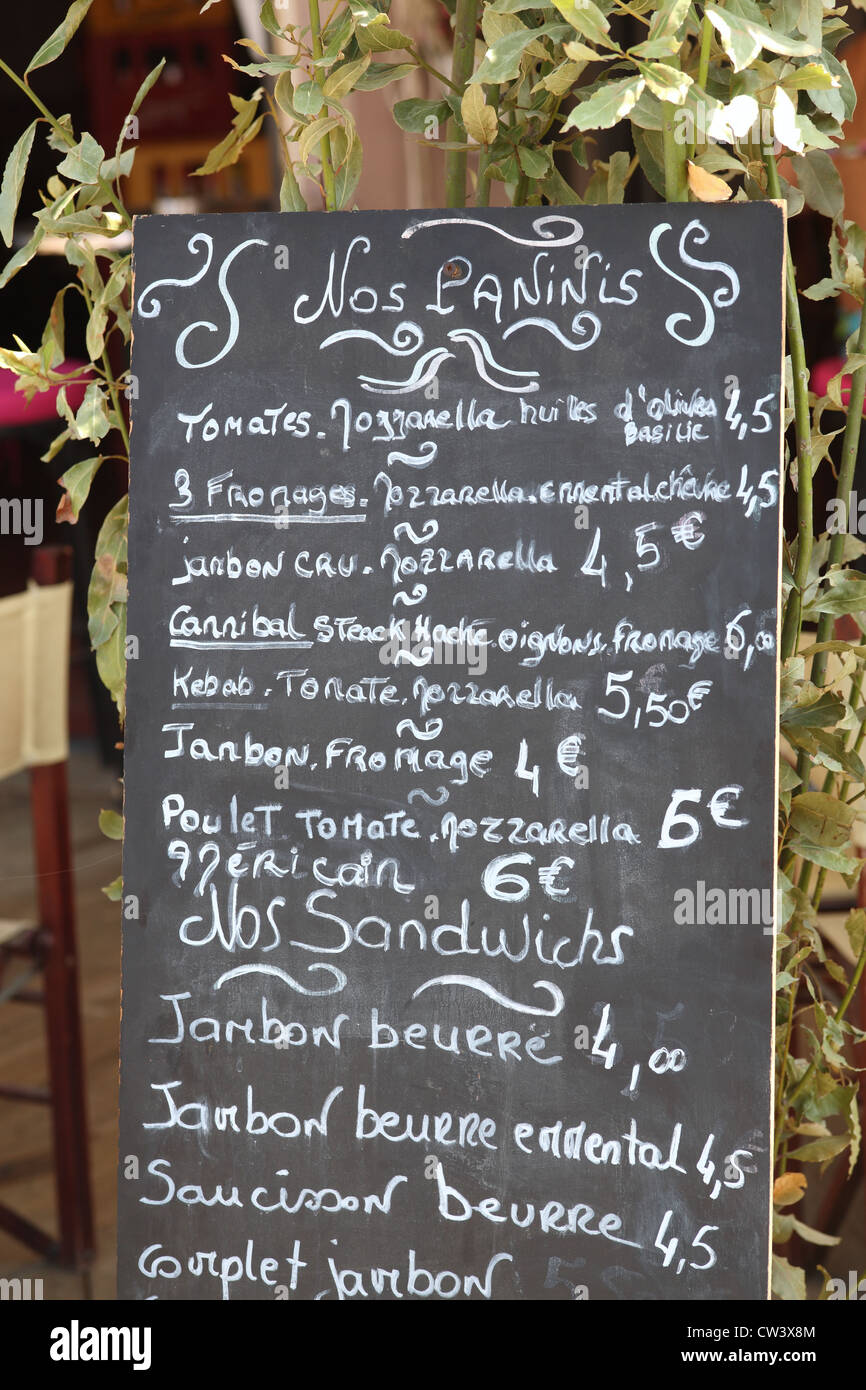 Nos PANiNis
Tomates. Mozzarella huiles d'olives 4,5
Basilic
3 Fromages. Mozzarella. emmental. chêvre 4,5
jambon cru. Mozzarella 4,5 €
Cannibal Steack Haché. oignons. fromage 6,00
Kebab. Tomate. Mozzarella 5,50 €
Jambon. Fromage 4 €
Poulet Tomate. Mozzarella 6 €
Méricain 6 €
Nos Sandwichs
Jambon beurre 4,00
Jambon beurre emmental 4,5
Saucisson beurre 4,5
Complet jambon
alamy
alamy
Image ID: CW3X8M
www.alamy.com